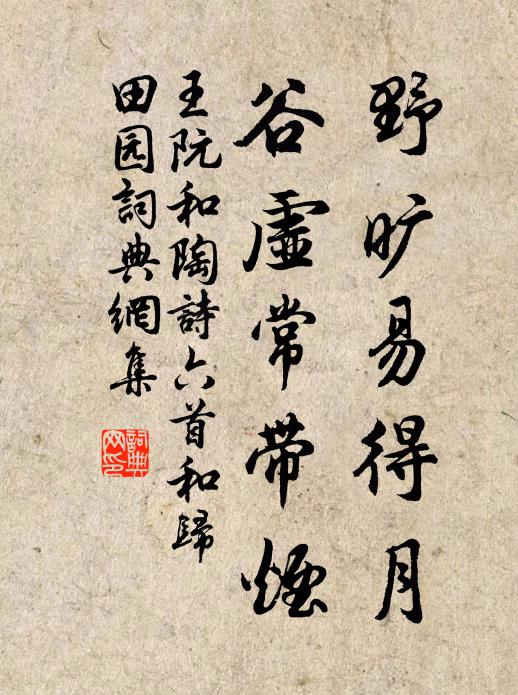 野旷易得月
谷虛常帶煙
王阮和陶詩六首和歸
田园詞典網集
詞典网印